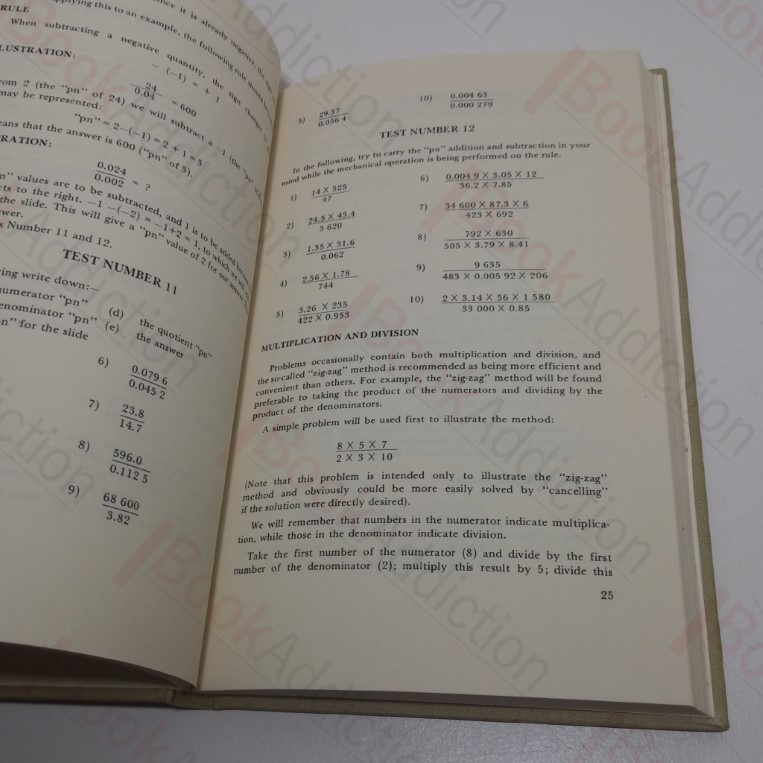 ince it is already negative, the
applying this to an example, the following rule should
RULE
When subtracting a negative quantity, the sign changes
LUSTRATION:
− (−1) = + 1
24
0.04 = 600
rom 2 (the "pn" of 24) we will subtract a −1 (the "pn" of
may be represented:
"pn" = 2−(−1) = 2 + 1 = 3
eans that the answer is 600 ("pn" of 3).
RATION:
0.024
0.002 = ?
n" values are to be subtracted, and 1 is to be added because
cts to the right. −1 −(−2) = −1+2 = 1, to which we will
the slide. This will give a "pn" value of 2 for our answer
wer.
s Number 11 and 12.
TEST NUMBER 11
ing write down:—
umerator "pn"
(d) the quotient "pn"
enominator "pn"
(e) the answer
n" for the slide
6) 0.079 6
0.045 2
7) 23.8
14.7
8) 596.0
0.112 5
9) 68 600
3.82
5) 29.37
0.056 4
10) 0.004 65
0.000 279
TEST NUMBER 12
In the following, try to carry the "pn" addition and subtraction in your
mind while the mechanical operation is being performed on the rule.
1) 14 X 525
47
2) 24.5 X 43.4
3 620
3) 1.35 X 31.6
0.062
4) 2.56 X 1.78
744
5) 3.26 X 235
422 X 0.953
6) 0.004 9 X 3.05 X 12
36.2 X 7.85
7) 34 600 X 87.3 X 6
423 X 692
8) 792 X 630
505 X 3.79 X 8.41
9) 9 635
483 X 0.005 92 X 206
10) 2 X 3.14 X 56 X 1 580
33 000 X 0.85
MULTIPLICATION AND DIVISION
Problems occasionally contain both multiplication and division, and
the so-called "zig-zag" method is recommended as being more efficient and
convenient than others. For example, the "zig-zag" method will be found
preferable to taking the product of the numerators and dividing by the
product of the denominators.
A simple problem will be used first to illustrate the method:
8 X 5 X 7
2 X 3 X 10
(Note that this problem is intended only to illustrate the "zig-zag"
method and obviously could be more easily solved by "cancelling"
if the solution were directly desired).
We will remember that numbers in the numerator indicate multiplica-
tion, while those in the denominator indicate division.
Take the first number of the numerator (8) and divide by the first
number of the denominator (2); multiply this result by 5; divide this
25
BookAddiction